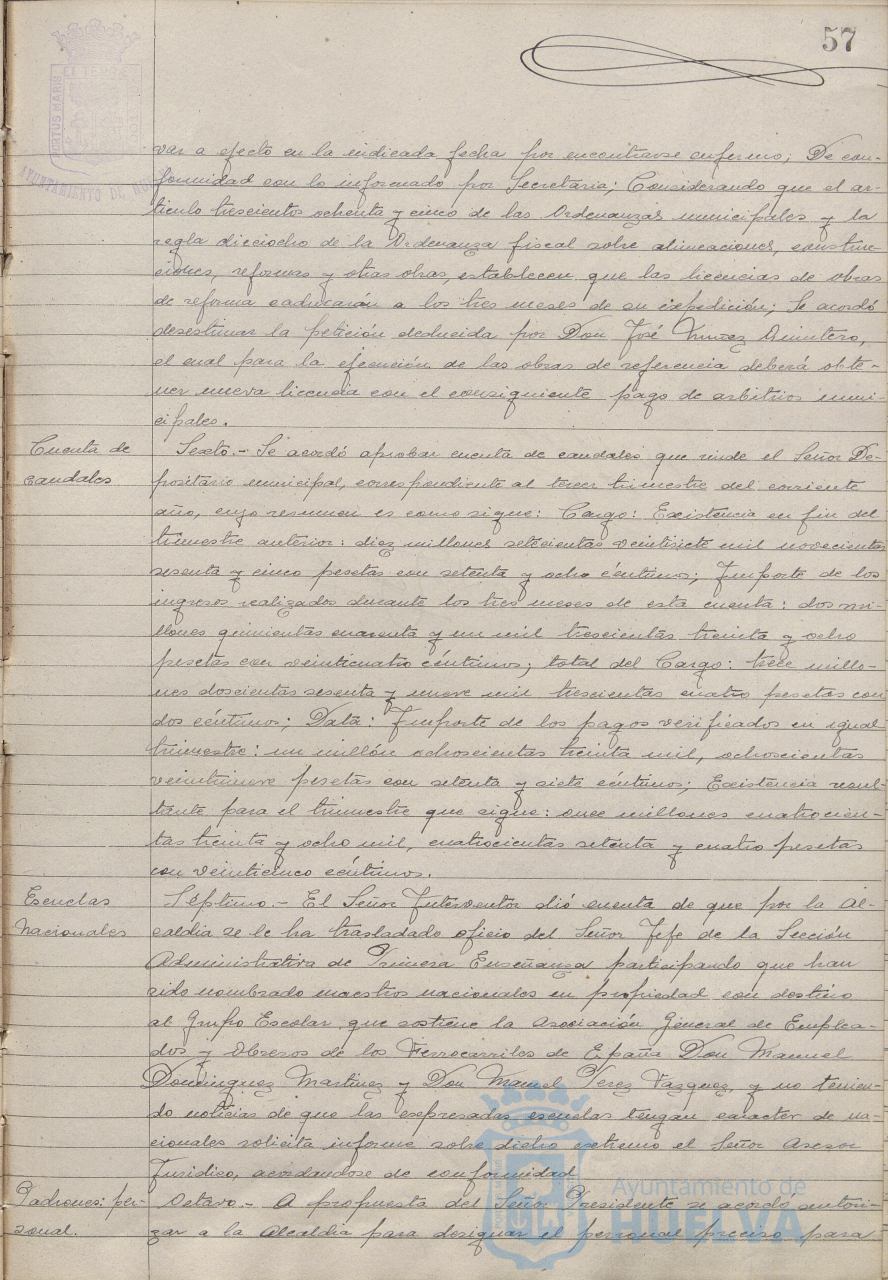 57
PORTUS MARIS
ET TERRE
AYUNTAMIENTO DE HU
var a efecto en la indicada fecha por encontrarse enfermo; De con-
formidad con lo informado por Secretaría; Considerando que el ar-
tículo trescientos ochenta y cinco de las Ordenanzas municipales y la
regla dieciocho de la Ordenanza fiscal sobre alineaciones, construc-
ciones, reformas y otras obras, establecen que las licencias de obras
de reforma caducarán a los tres meses de su expedición; Se acordó
desestimar la petición deducida por Don José Quintero,
el cual para la ejecución de las obras de referencia deberá obte-
ner nueva licencia con el consiguiente pago de arbitrios muni-
cipales.
Cuenta de
caudales
Sexto.- Se acordó aprobar cuenta de caudales que rinde el Señor De-
positario municipal, correspondiente al tercer trimestre del corriente
año, cuyo resumen es como sigue: Cargo: Existencia en fin del
trimestre anterior: diez millones setecientas veintisiete mil novecientas
sesenta y cinco pesetas con setenta y ocho céntimos; Importe de los
ingresos realizados durante los tres meses de esta cuenta: dos mi-
llones quinientas cuarenta y un mil trescientas treinta y ocho
pesetas con veinticuatro céntimos; total del Cargo: trece millo-
nes doscientas sesenta y nueve mil trescientas cuatro pesetas con
dos céntimos; Data: Importe de los pagos verificados en igual
trimestre: un millón ochoscientas treinta mil, ochoscientas
veintinueve pesetas con setenta y siete céntimos; Existencia resul-
tante para el trimestre que sigue: once millones cuatrocien-
tas treinta y ocho mil, cuatrocientas setenta y cuatro pesetas
con veinticinco céntimos.
Escuelas
Nacionales
Séptimo.- El Señor Interventor dió cuenta de que por la Al-
caldía se le ha trasladado oficio del Señor Jefe de la Sección
Administrativa de Primera Enseñanza participando que han
sido nombrado maestros nacionales en propiedad con destino
al Grupo Escolar que sostiene la Asociación General de Emplea-
dos y Obreros de los Ferrocarriles de España Don Manuel
Domínguez Martínez y Don Manuel Perez Vazquez, y no tenien-
do noticias de que las expresadas escuelas tengan caracter de na-
cionales solicita informe sobre dicho extremo el Señor Asesor
Jurídico, acordandose de conformidad
Padrones: per-
sonal.
Octavo.- A propuesta del Señor Presidente se acordó autori-
zar a la Alcaldía para designar el personal preciso para
Ayuntamiento de
HUELVA